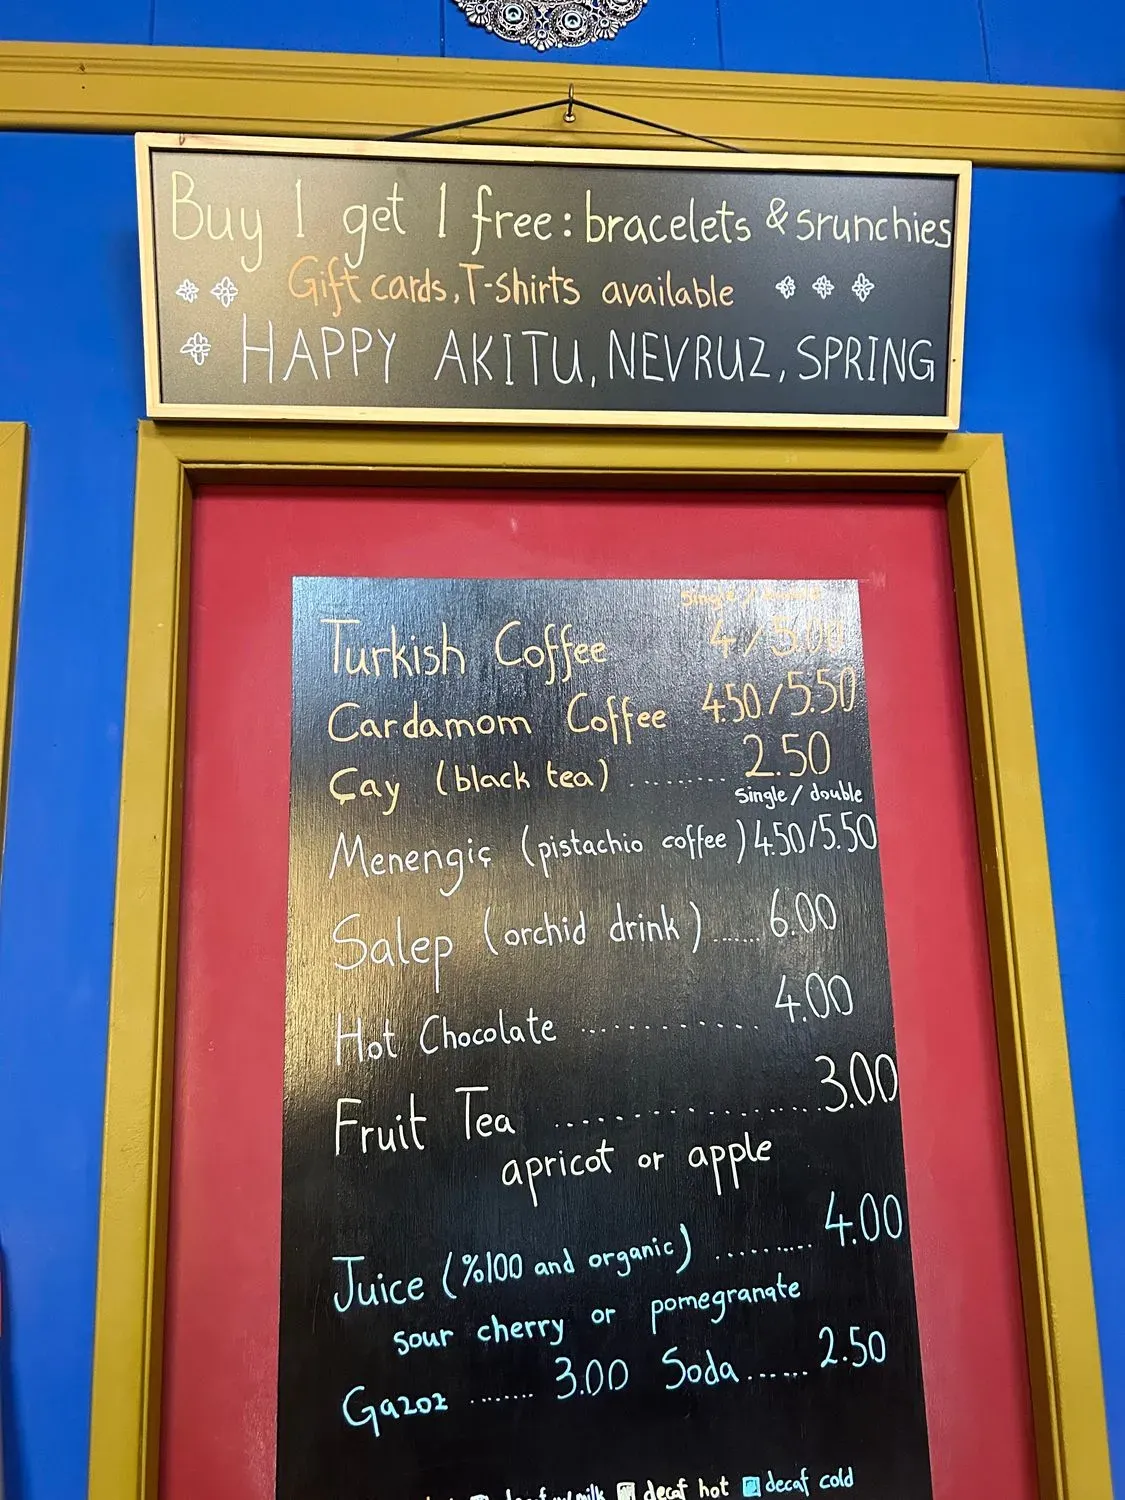 Buy 1 get 1 free: bracelets & srunchies
Gift cards, T-shirts available
HAPPY AKITU, NEVRUZ, SPRING
single /
Turkish Coffee 4 / 5.00
Cardamom Coffee 4.50/5.50
Çay (black tea) ......... 2.50
single / double
Menengiç (pistachio coffee) 4.50/5.50
Salep (orchid drink) ...... 6.00
Hot Chocolate ............. 4.00
Fruit Tea .................. 3.00
apricot or apple
Juice (%100 and organic) .......... 4.00
sour cherry or pomegranate
Gazoz ........ 3.00 Soda ...... 2.50
milk decaf hot decaf cold